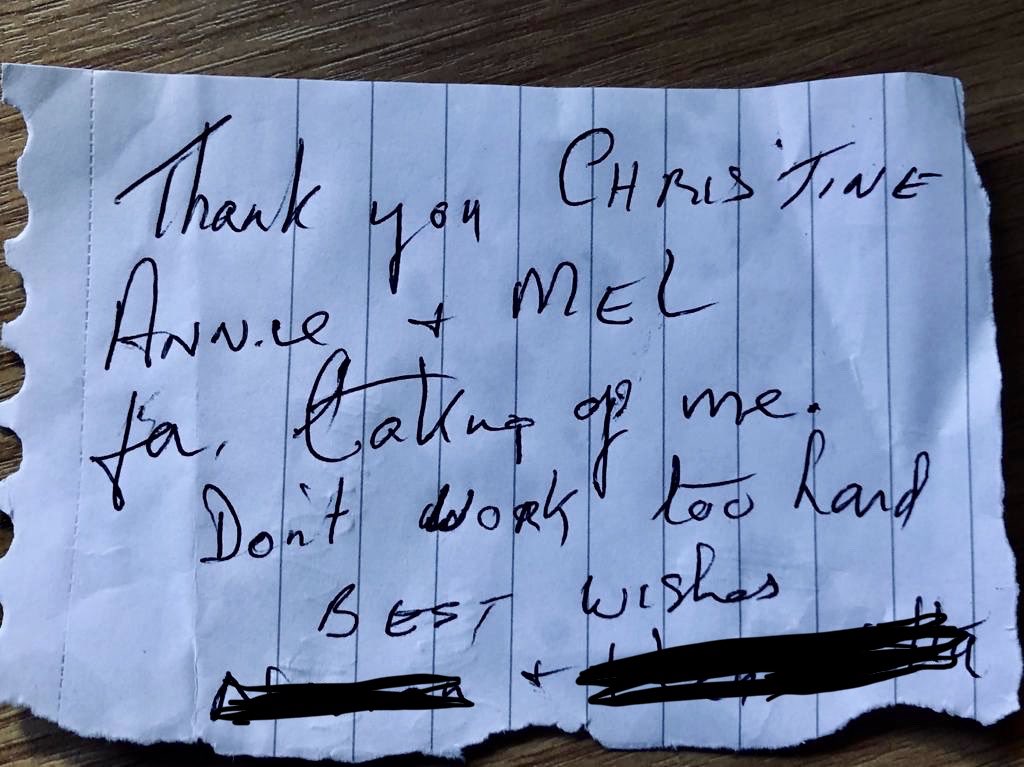 Thank you CHRISTINE
ANNie + MEL
for taking of me.
Don't work too hard
BEST wishes
+